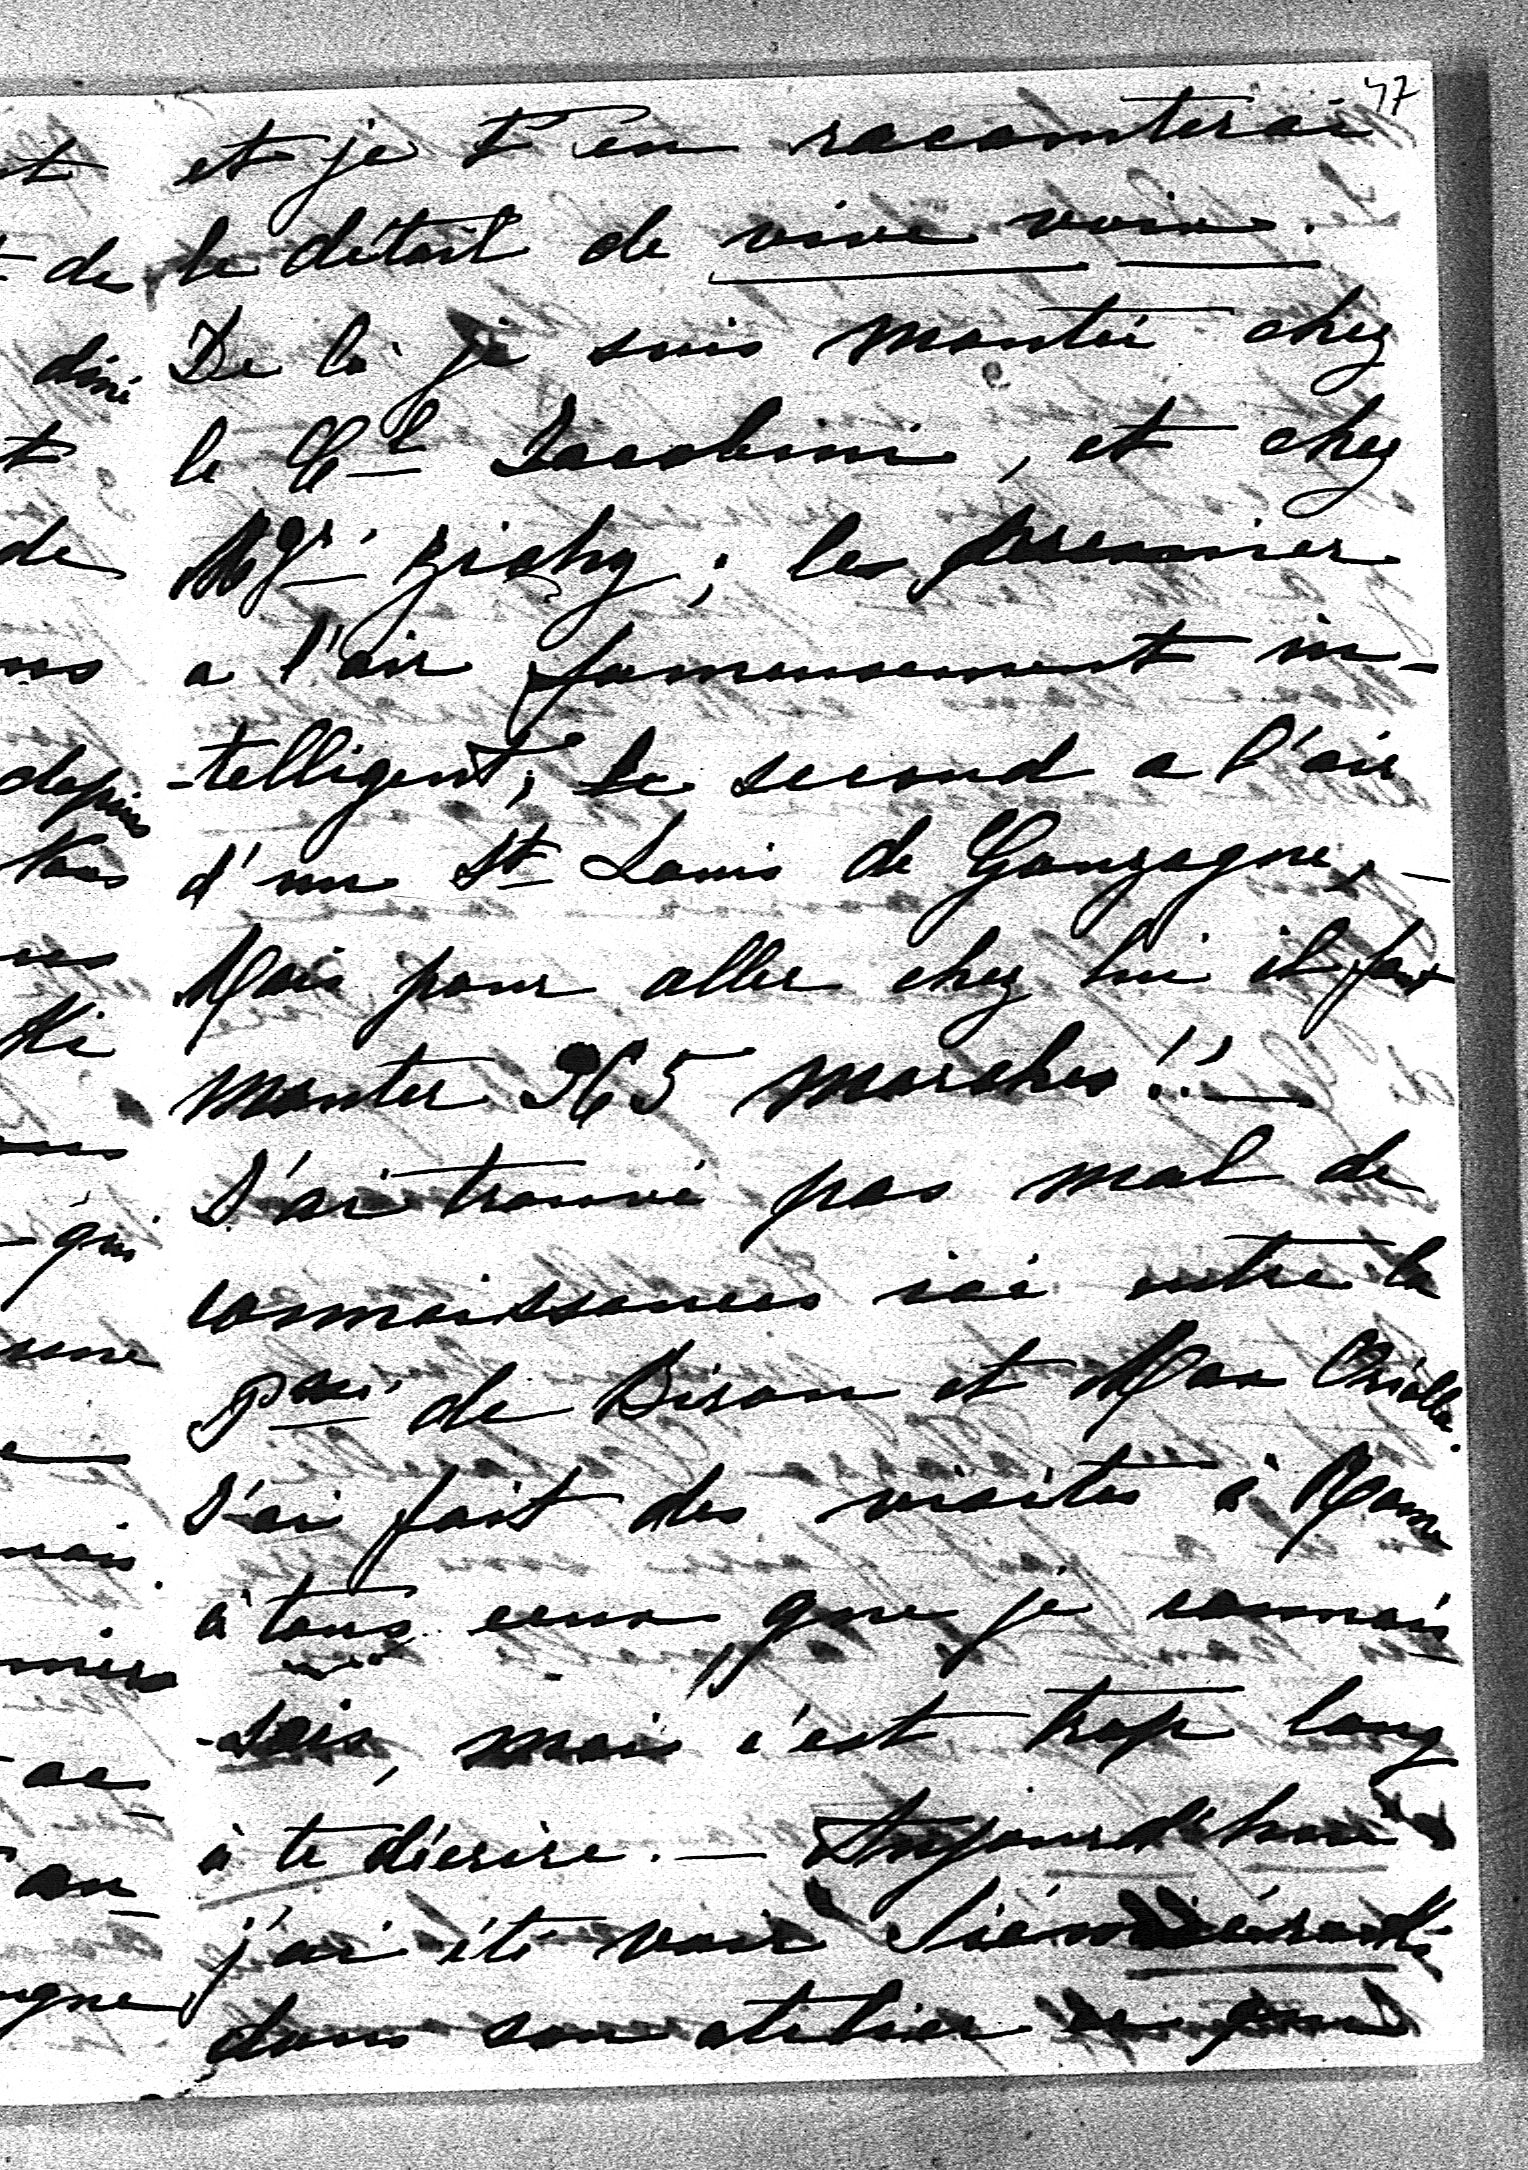 47
et je t'en raconterai
le détail de vive voix.
De là je suis montée chez
le Cal Jacobini, et chez
Mgr Zichy; le premier
a l'air fameusement in-
-telligent, le second a l'air
d'un St Louis de Gonzague, -
Mais pour aller chez lui il faut
monter 365 marches!! -
J'ai trouvé pas mal de
connaissances ici entre la
Psse de Biron et Max
J'ai fait des visites à Rome
à tous ceux que je connais-
-sais, mais c'est trop long
à te décrire. - Aujourd'hui
j'ai été voir Siémiéradzki
dans son atelier